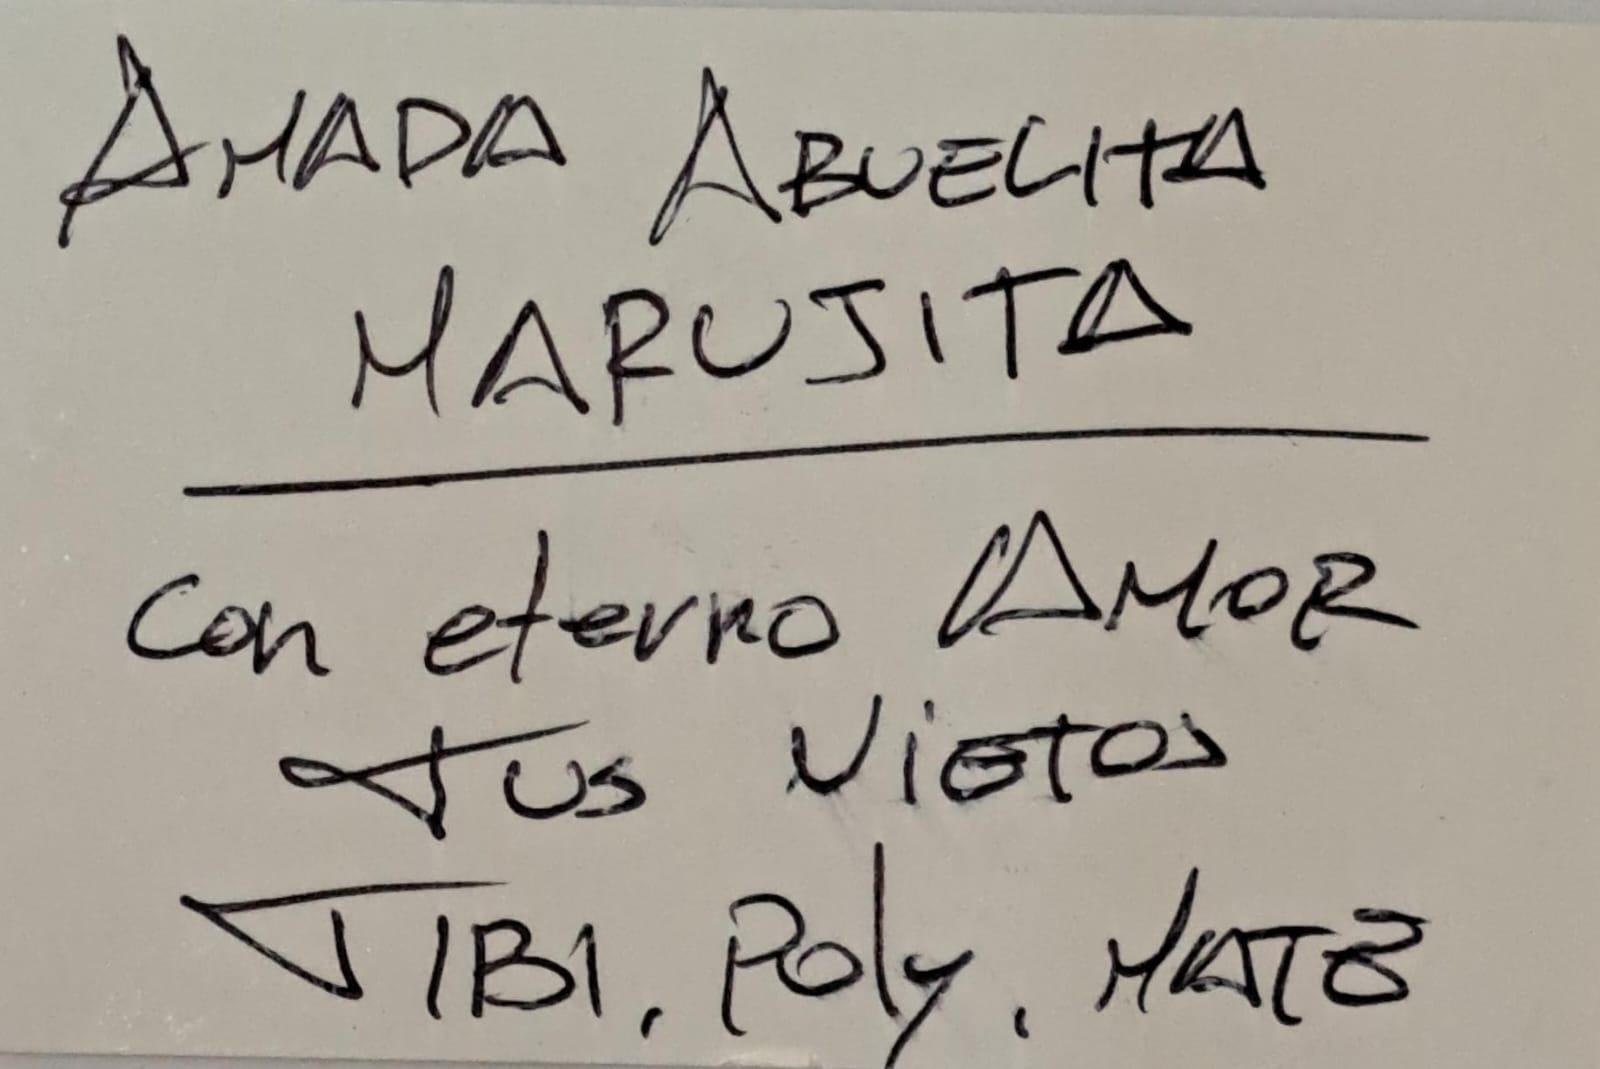 AMADA ABUELITA
MARUJITA
con eterno AMOR
TUS NIETOS
TIBI, Poly, MATE